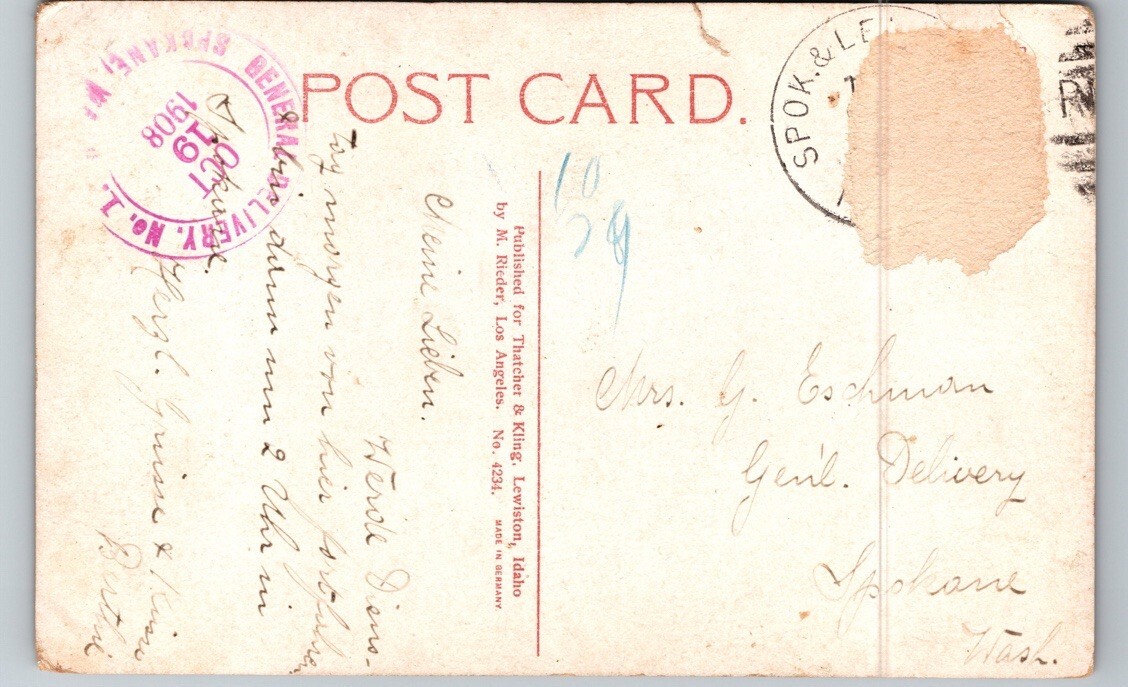 POST CARD.
SPOK. & LE
R
SPOKANE, WA
GENERAL DELIVERY. No. 1.
OCT
19
1908
10
29
Meine Lieben.
Werde Diens-
tag morgen von hier fortfahren
& bin dann um 2 Uhr in
Spokane.
Herzl. Grüsse & Küsse
Bertha
Published for Thatcher & Kling, Lewiston, Idaho
by M. Rieder, Los Angeles. No. 4234. MADE IN GERMANY.
Mrs. G. Eschman
Gen'l. Delivery
Spokane
Wash.